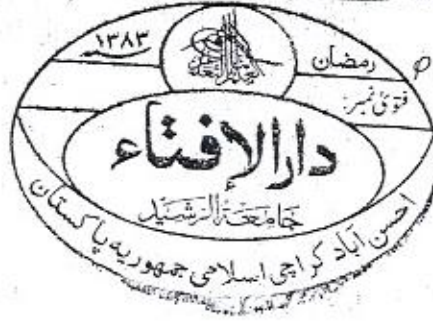 رمضان ۱۳۸۳
فتویٰ نمبر:
دارالإفتاء
جَامِعَۃُ الرَّشِید
احسن آباد کراچی اسلامی جمهوریه پاکستان